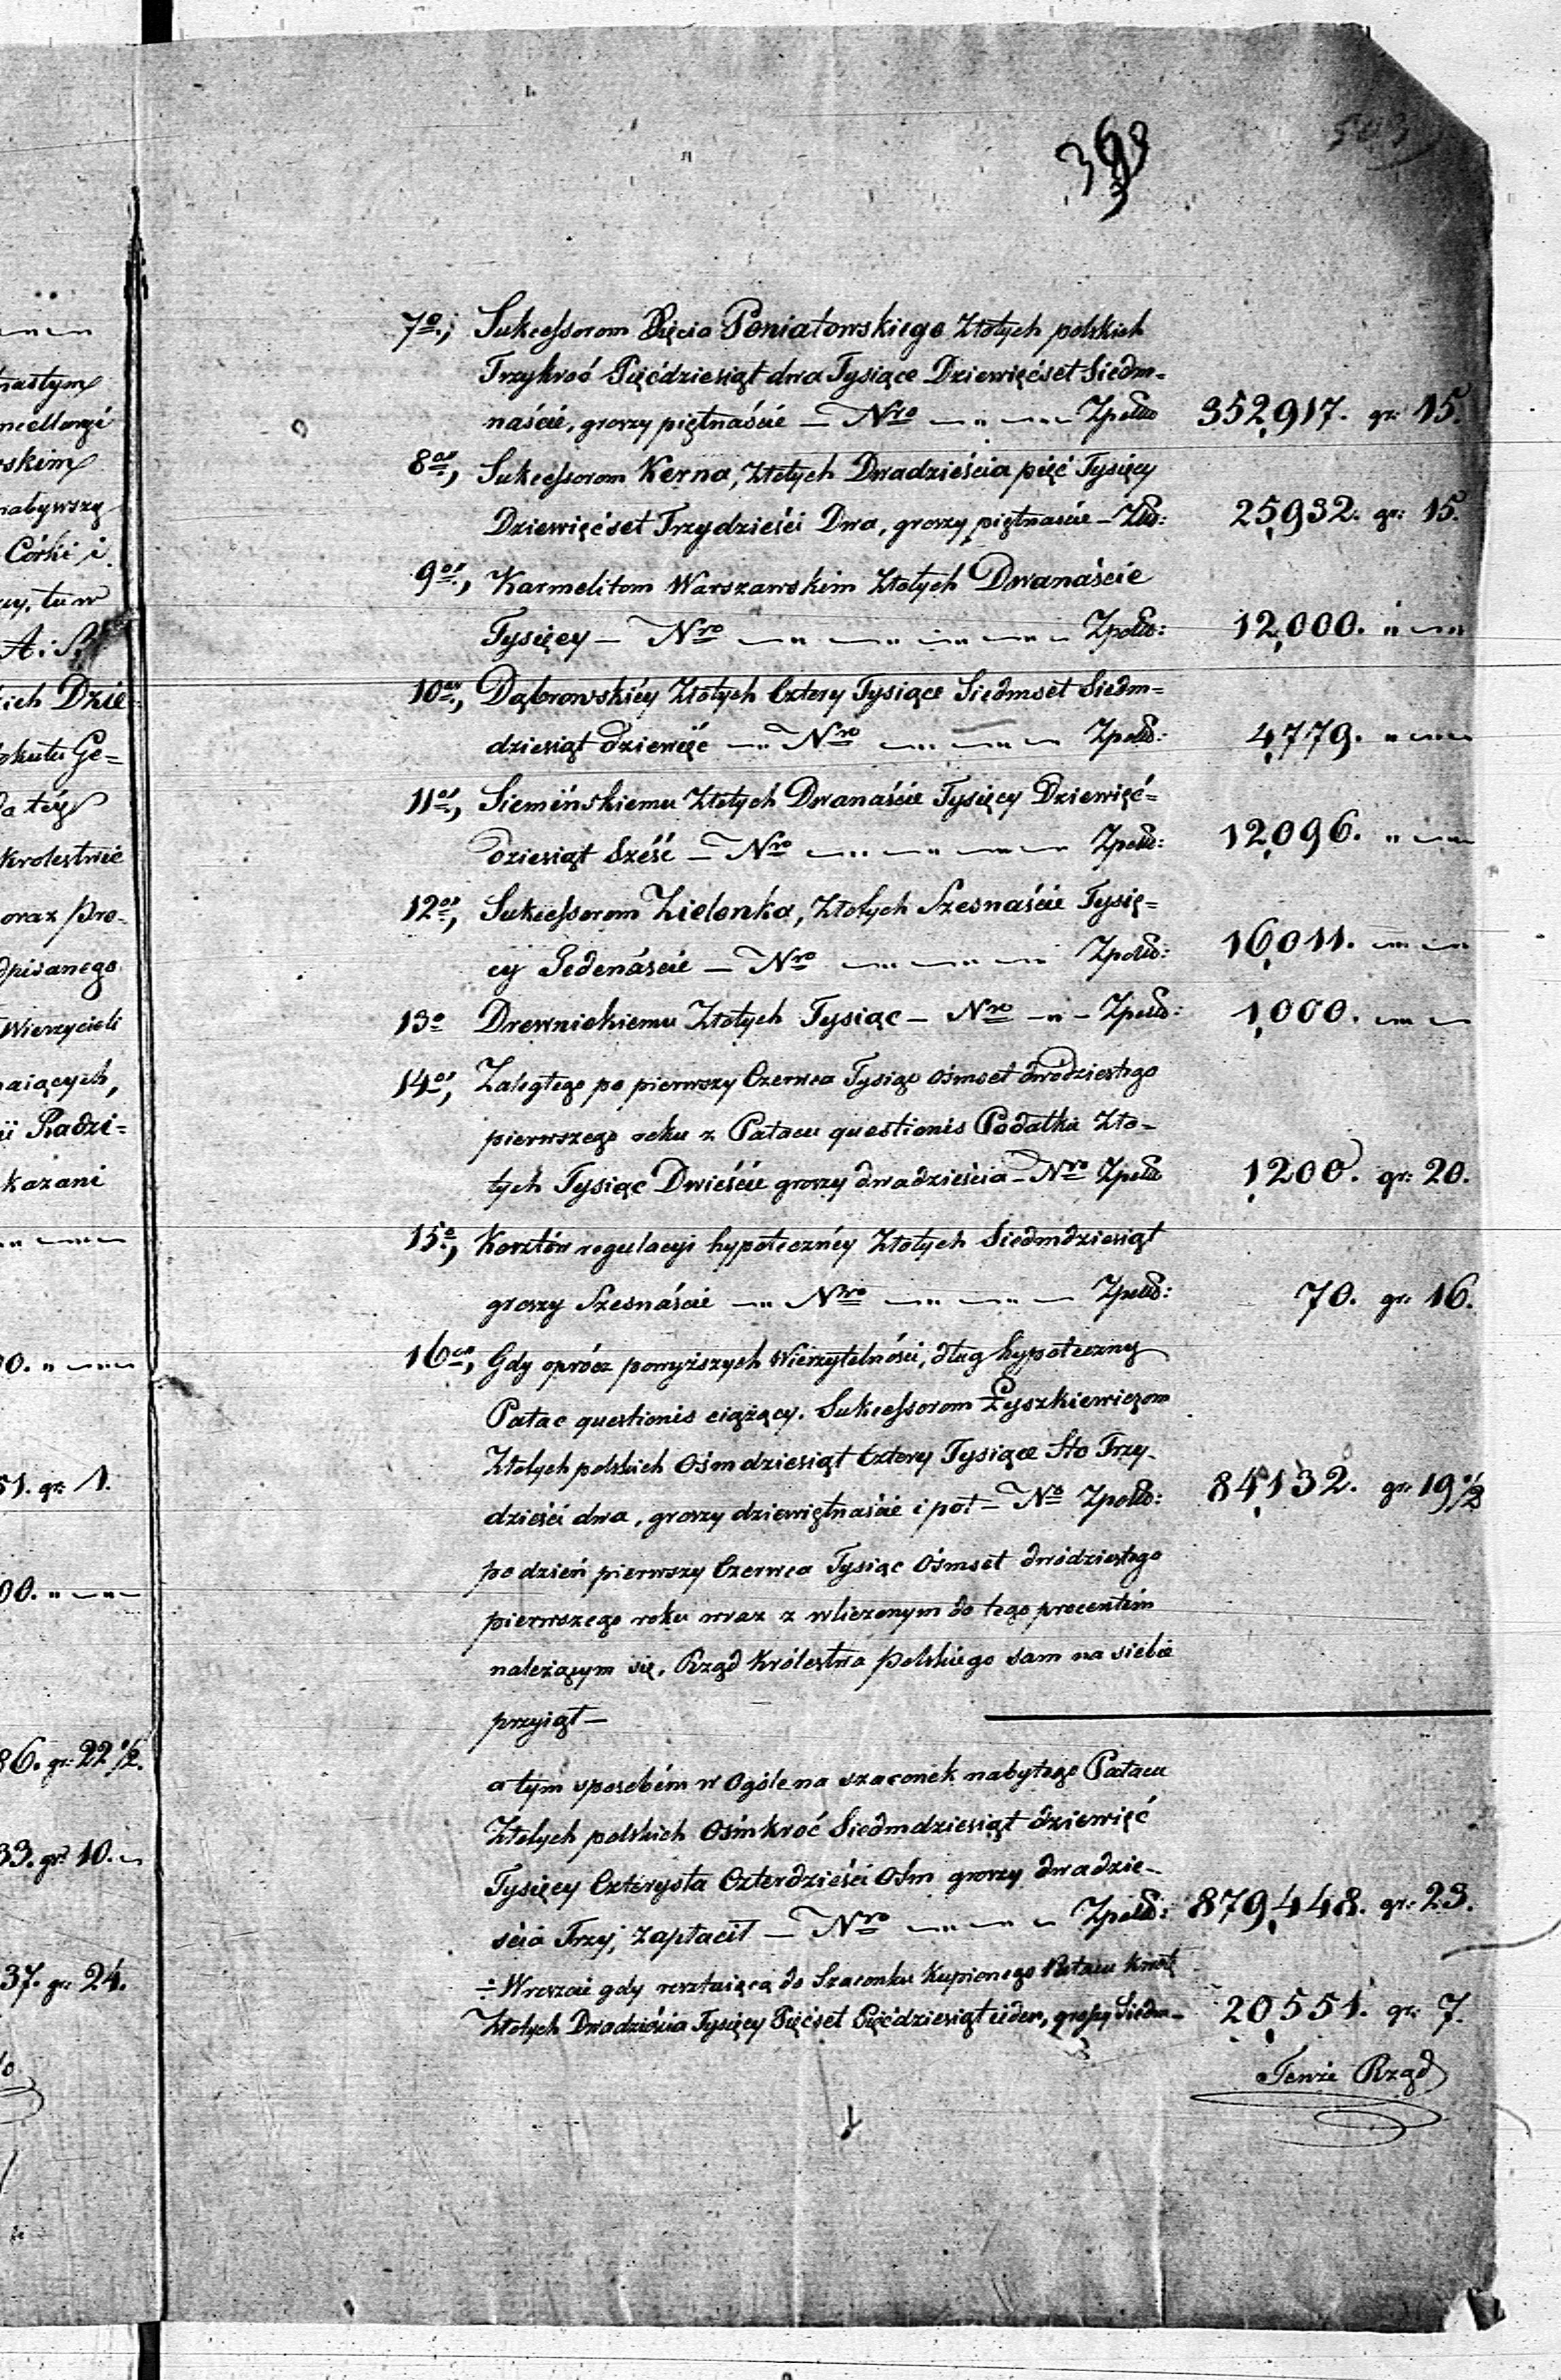 nastym
skim
nabywszy
Córki i
tuw
A: P:
ich Dzie=
Ge=
da téy
Krolestwie
oraz pro-
dpisanego
Wierzycieli
aiących,
ii Radzi=
kazani
00. " —
51. gr: 1.
00. " —
86. gr: 22 1/2.
33. gr: 10.
37. gr: 24.
393
7o., Sukcessorom Xięcia Poniatowskiego Złotych polskich
Trzykroć Pięćdziesiąt dwa Tysiące Dziewięćset Siedm-
naście, groszy piętnaście — Nro — " — Zpolld 352,917. gr: 15.
8o., Sukcessorom Kerna, Złotych Dwadzieścia pięć Tysięcy
Dziewięćset Trzydzieści Dwa, groszy piętnaście – Złlb: 25,932. gr: 15.
9o., Karmelitom Warszawskim Złotych Dwanaście
Tysięcy — Nro — Zpolld: 12,000. " —
10o., Dąbrowskiéy Złotych Cztery Tysiące Siedmset Siedm=
dziesiąt dziewięć — Nro — Zpolld: 4,779. " —
11o., Siemińskiemu Złotych Dwanaście Tysięcy Dziewięć=
dziesiąt Sześć — Nro — Zpolld: 12,096. " —
12o., Sukcessorom Zielonka, Złotych Szesnaście Tysię=
cy Jedenáście — Nro — Zpolld: 16,011. —
13o Drewnickiemu Złotych Tysiąc — Nro – " – Zpolld: 1,000. —
14o., Zaległego po pierwszy Czerwca Tysiąc ośmset dwódziestego
pierwszego roku z Pałacu questionis Podatku Zło-
tych Tysiąc Dwieście groszy dwadzieścia – Nro Zpolld 1,200. gr: 20.
15o., Kosztów regulacyi hypotecznéy Złotych Siedmdziesiąt
groszy Szesnáście — Nro — Zpolld: 70. gr: 16.
16o., Gdy oprócz powyższych Wierzytelności, dług hypoteczny
Pałac questionis ciążący. Sukcessorom Łyszkiewiczom
Złotych polskich Ośmdziesiąt Cztery Tysiące Sto Trzy-
dzieści dwa, groszy dziewiętnaście i poł – No Zpolld: 84,132. gr: 19 1/2
po dzień pierwszy Czerwca Tysiąc Ośmset dwódziestego
pierwszego roku wraz z wliczonym do tego procentém
należącym się, Rząd Królestwa Polskiego sam na siebie
przyiął —
a tym sposobém w Ogóle na szacunek nabytego Pałacu
Złotych polskich Ośmkroć Siedmdziesiąt dziewięć
Tysięcy Czterysta Czterdzieści Ośm groszy dwadzie-
ścia Trzy, zapłacił — Nro — Zpolld: 879,448. gr: 23.
÷ Wreszcie gdy resztuiącą do Szacunku Kupionego Pałacu kwotę
Złotych Dwadzieścia Tysięcy Pięćset Pięćdziesiąt ieden, groszy Siedm— 20,551. gr: 7.
Tenże Rząd